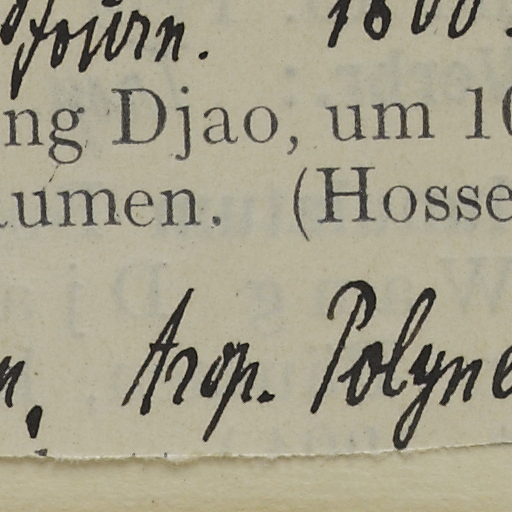 Journ. 1800.
ng Djao, um 10
aumen. (Hosse
n, Arop. Polyne